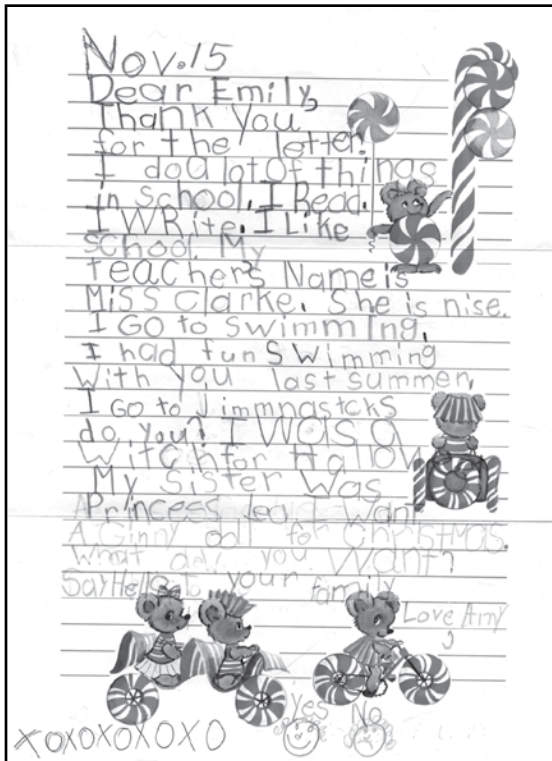 Nov. 15
Dear Emily,
Thank You
for the letter.
I do a lot of things
in school. I Read.
I WRite. I Like
School. My
teacher's Name is
Miss Clarke. She is nise.
I GO to swimming.
I had fun Swimming
With you last summer.
I GO to Jimmnastcks
do you? I was a
Witch for Hallow
My Sister Was
Princess I Want
A Ginny doll for Christmas.
What do you Want?
Say Hello to your family
Love Amy
Yes No
XOXOXOXOXO